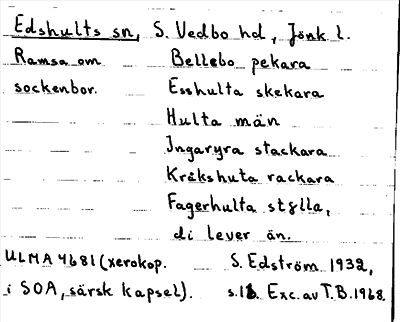 Edshults sn, S. Vedbo hd, Jönk l.
Ramsa om Bellebo pekara
sockenbor. Esshulta skekara
Hulta män
Ingaryra stackara
Kråkshuta rackara
Fagerhulta stylla,
di lever än.
ULMA 4681 (xerokop. S. Edström 1932,
i SOA, särsk kapsel). Exc. av T.B. 1968.